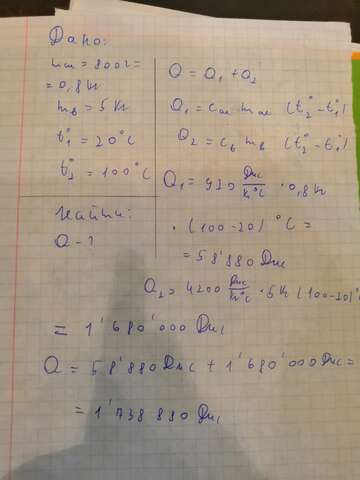 Дано:
mал = 800г =
= 0,8 кг
mв = 5 кг
t₁° = 20°C
t₂° = 100°C
Найти:
Q - ?
Q = Q₁ + Q₂
Q₁ = cал mал (t₂° - t₁°)
Q₂ = cв mв (t₂° - t₁°)
Q₁ = 920 Дж/кг°C · 0,8 кг
· (100 - 20) °C =
= 58'880 Дж
Q₂ = 4200 Дж/кг°C · 5 кг (100-20)°
= 1'680'000 Дж
Q = 58'880 Дж + 1'680'000 Дж =
= 1'738 880 Дж